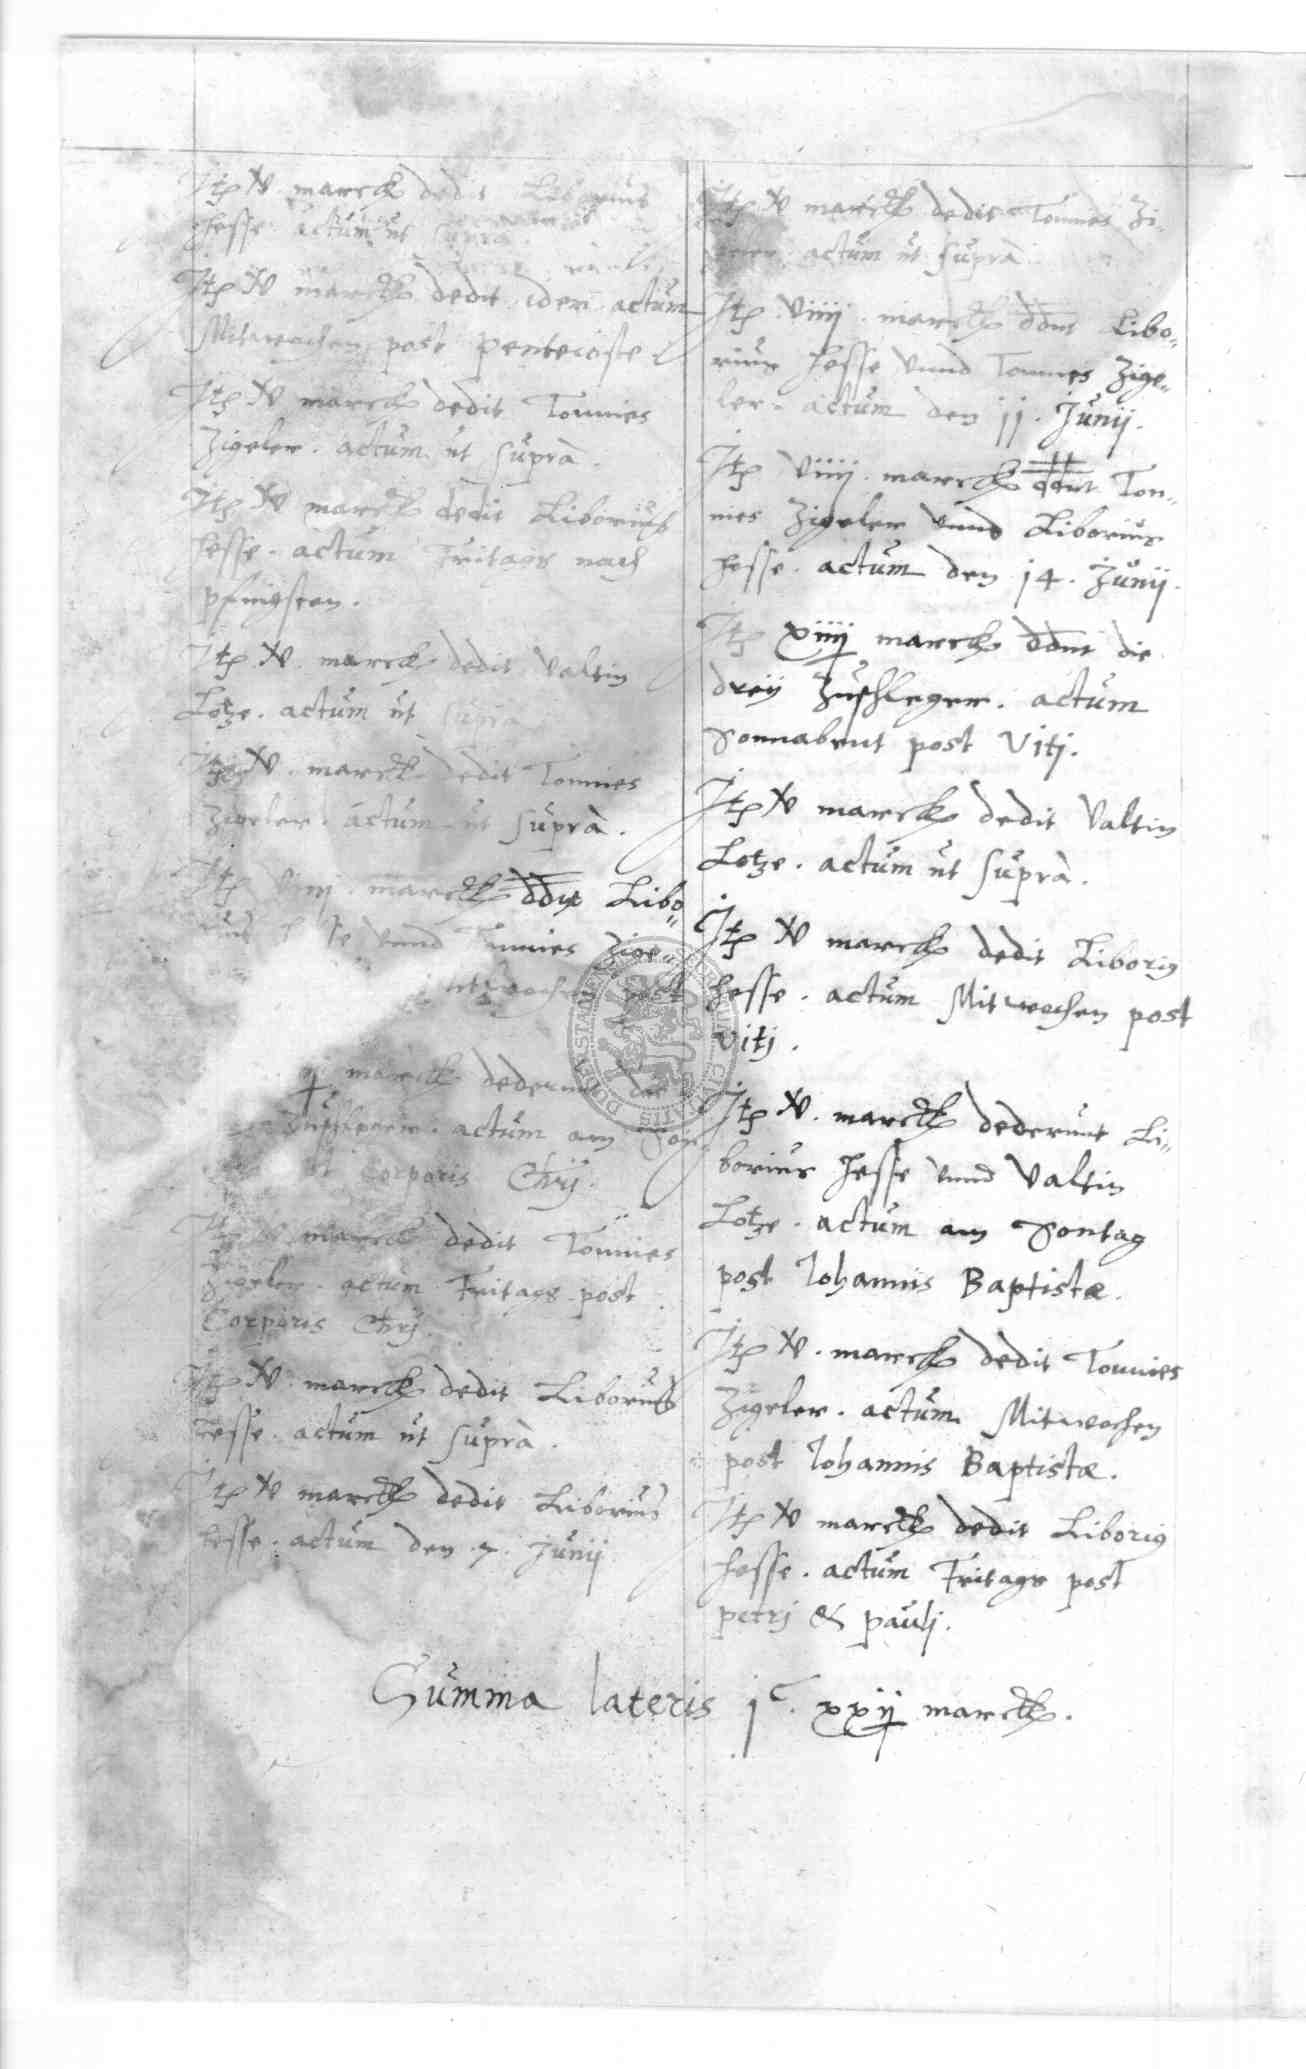 Jtp v marck dedit Liborius
Hesse actum ut supra.
Jtp v marck dedit idem actum
Mitwochen post pentecoste
Jtp v marck dedit Tonnies
Zigeler. actum ut suprà.
Jtp v marck dedit Liborius
Hesse. actum Fritags nach
pfingsten.
Jtp v. marck dedit Valtin
Lotze. actum ut supra
Jtp v. marck dedit Tonnies
Zigeler. actum ut suprà.
Jtp marck ddnt Libo„
Hesse vnnd Tonnies Zige„
post
marck dederunt die
Zuschleger. actum am
Corporis Chrj.
Jtp marck dedit Tonnies
Zigeler. actum Fritags post
Corporis Chrj.
Jtp v marck dedit Liborius
Hesse. actum ut suprà.
Jtp v marck dedit Liborius
Hesse. actum den .7. Junij
Jtp v marck dedit Tonnies Zi„
geler. actum ut suprà.
Jtp viiij. marck ddnt Libo„
rius Hesse vnnd Tonnies Zige„
ler. actum den 11. Junij.
Jtp viiij. marck ddnt Ton„
nies Zigeler vnnd Liborius
Hesse. actum den 14. Junij.
Jtp xiiij marck ddnt die
dreij Zuschleger. actum
Sonnabent post Vitj.
Jtp v marck dedit Valtin
Lotze. actum ut suprà.
Jtp v marck dedit Liborig
Hesse. actum Mitwochen post
Vitj.
Jtp v. marck dederunt Li„
borius Hesse vnnd Valtin
Lotze. actum am Sontag
post Johannis Baptistæ.
Jtp v. marck dedit Tonnies
Zigeler. actum Mitwochen
post Johannis Baptistæ.
Jtp v marck dedit Liborig
Hesse. actum Fritags post
petrj & paulj.
Summa lateris jc. xxij marck.